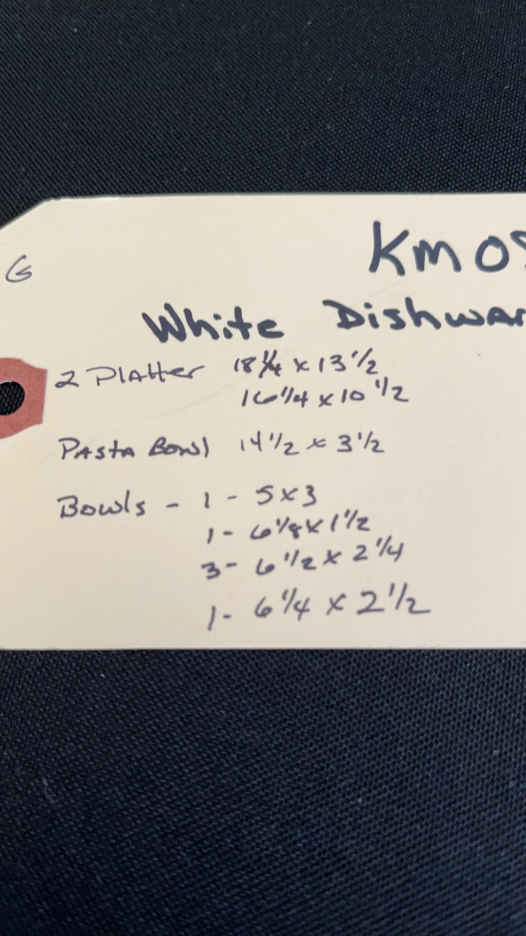 G
KM0
White Dishwar
2 Platter 18 1/4 x 13 1/2
16 1/4 x 10 1/2
Pasta Bowl 14 1/2 x 3 1/2
Bowls - 1 - 5x3
1 - 6 1/8 x 1 1/2
3 - 6 1/2 x 2 1/4
1 - 6 1/4 x 2 1/2